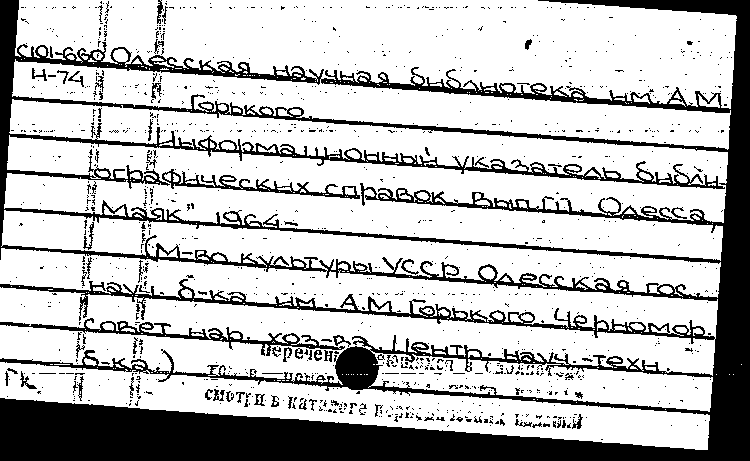 С101-660 Одесская научная библиотека им. А.М.
Н-74
Горького.
Информационный указатель библи-
ографических справок. Вып.[1]. Одесса,
"Маяк", 1964-
(М-во культуры УССР. Одесская гос.
науч. б-ка им. А.М. Горького. Черномор.
совет нар. хоз-ва. Центр. науч.-техн.
б-ка.)
Перечень имеющихся в библиотеке
смотри в каталоге периодических изданий
Гк.